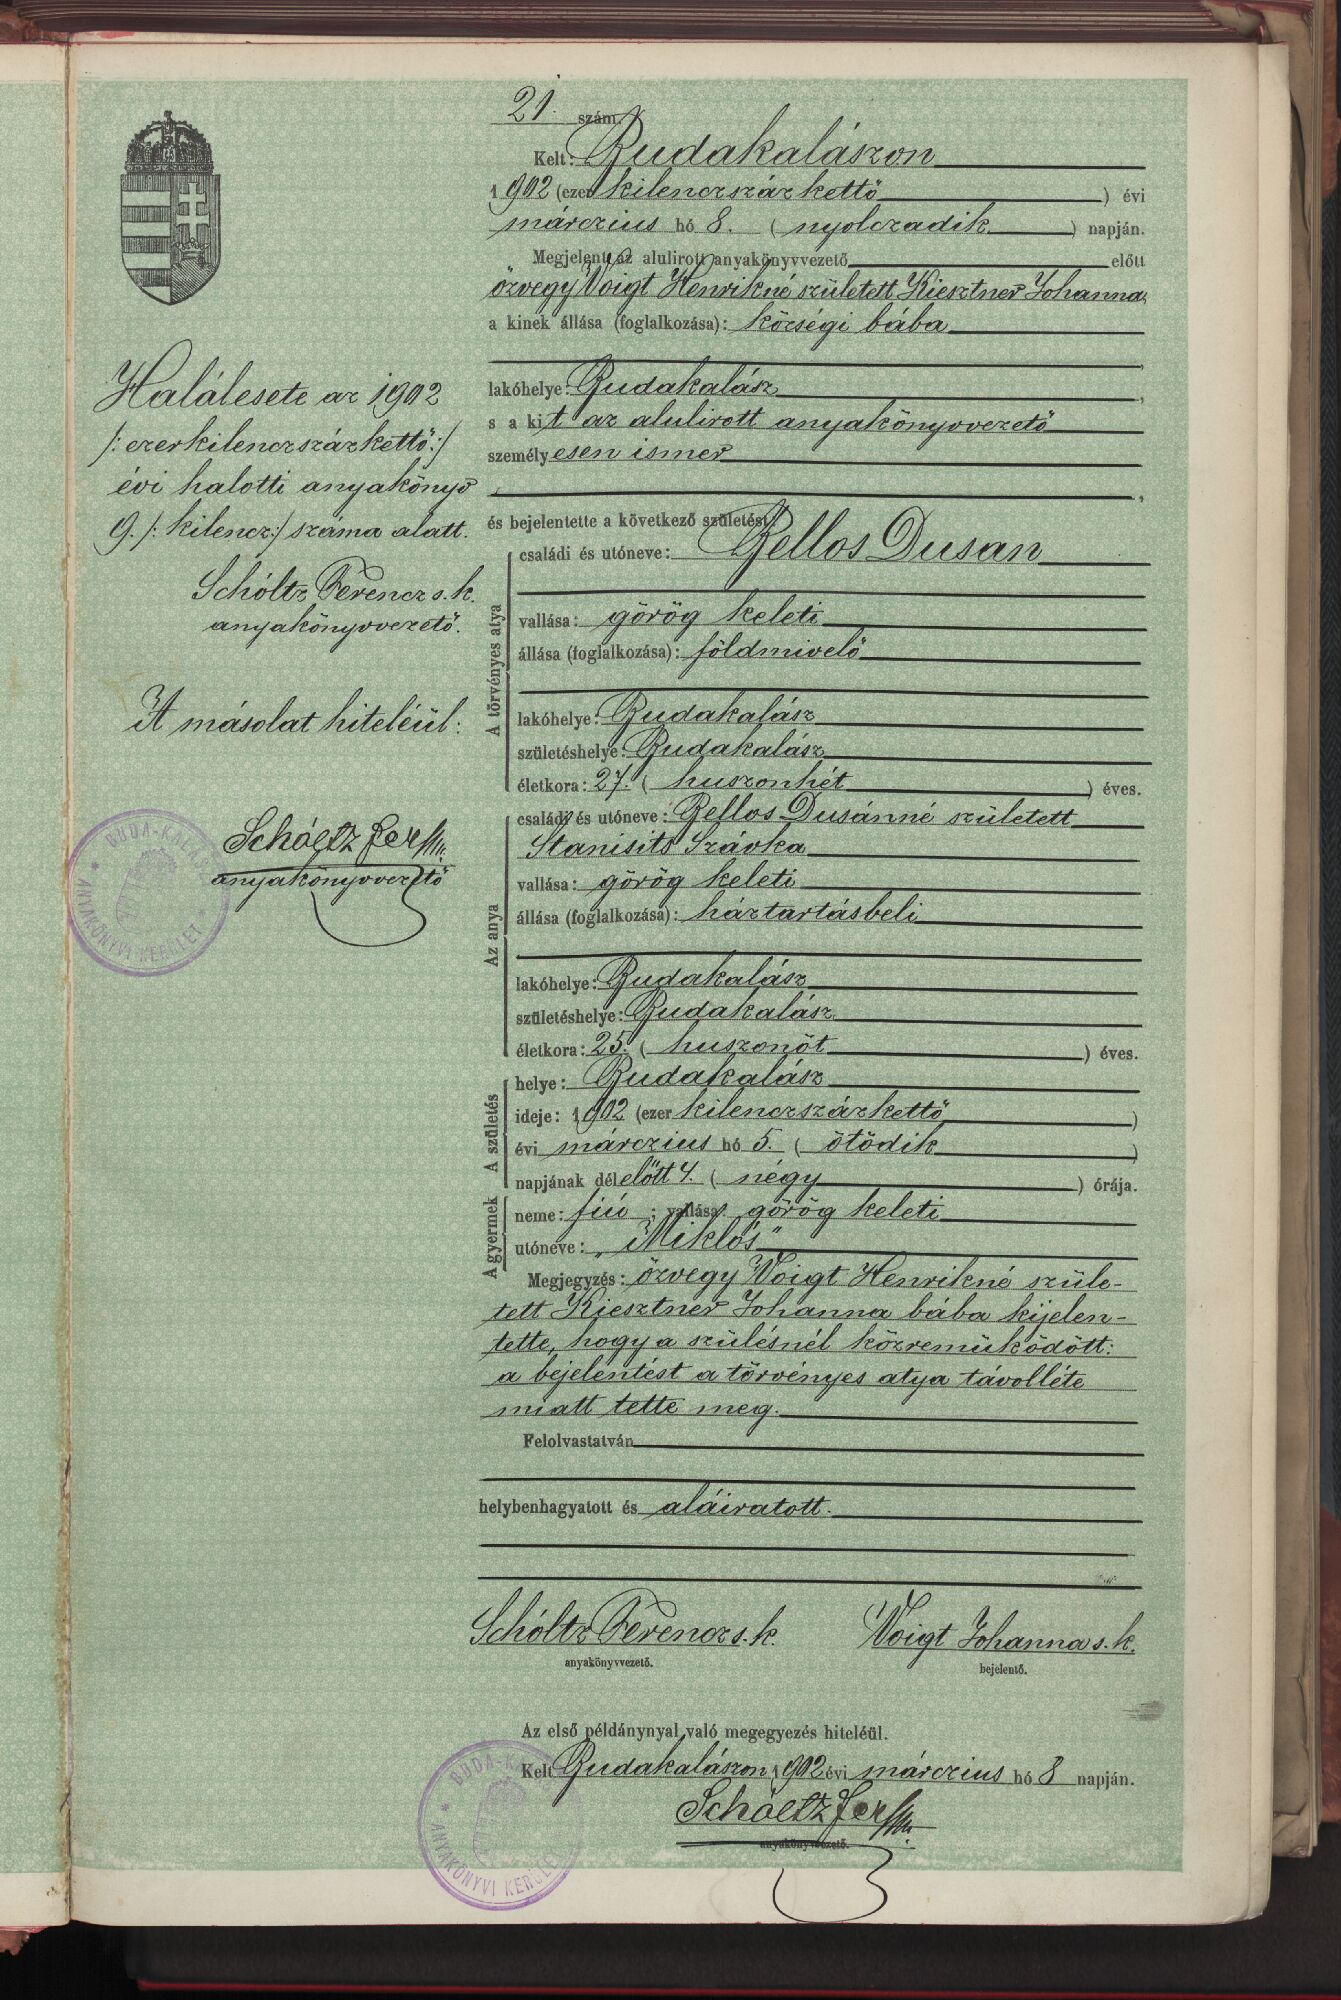 21. szám.
Kelt: Budakalászon
1902 (ezer kilenczszázkettő) évi
márczius hó 8. (nyolczadik) napján.
Megjelent az alulirott anyakönyvvezető előtt
özvegy Voigt Henrikné született Kiesztner Johanna,
a kinek állása (foglalkozása): községi bába
lakóhelye: Budakalász,
s a kit az alulirott anyakönyvvezető
személyesen ismer
,
és bejelentette a következő születést:
A törvényes atya
családi és utóneve: Bellos Dusan
vallása: görög keleti
állása (foglalkozása): földmivelő
lakóhelye: Budakalász
születéshelye: Budakalász
életkora: 27. (huszonhét) éves.
Az anya
családi és utóneve: Bellos Dusánné született
Stanisits Szávka
vallása: görög keleti
állása (foglalkozása): háztartásbeli
lakóhelye: Budakalász
születéshelye: Budakalász
életkora: 25. (huszonöt) éves.
A születés
helye: Budakalász
ideje: 1902 (ezer kilenczszázkettő)
évi márczius hó 5. (ötödik)
napjának délelőtt 4. (négy) órája.
A gyermek
neme: fiú; vallása: görög keleti
utóneve: „Miklós"
Megjegyzés: özvegy Voigt Henrikné szüle-
tett Kiesztner Johanna bába kijelen-
tette, hogy a szülésnél közreműködött:
a bejelentést a törvényes atya távolléte
miatt tette meg.
Felolvastatván
helybenhagyatott és aláiratott.
Schóltz Ferencz s. k. Voigt Johanna s. k.
anyakönyvvezető. bejelentő.
Az első példánynyal való megegyezés hiteléül.
Kelt Budakalászon, 1902 évi márczius hó 8 napján.
Schóltz Fer
anyakönyvvezető.
BUDA-KALÁSZ * ANYAKÖNYVI KERÜLET *
Halálesete az 1902
/: ezerkilenczszázkettő :/
évi halotti anyakönyv
9. /: kilencz :/ száma alatt.
Schóltz Ferencz s. k.
anyakönyvvezető.
A másolat hiteléül:
Schóltz Fer
anyakönyvvezető
BUDA-KALÁSZ * ANYAKÖNYVI KERÜLET *